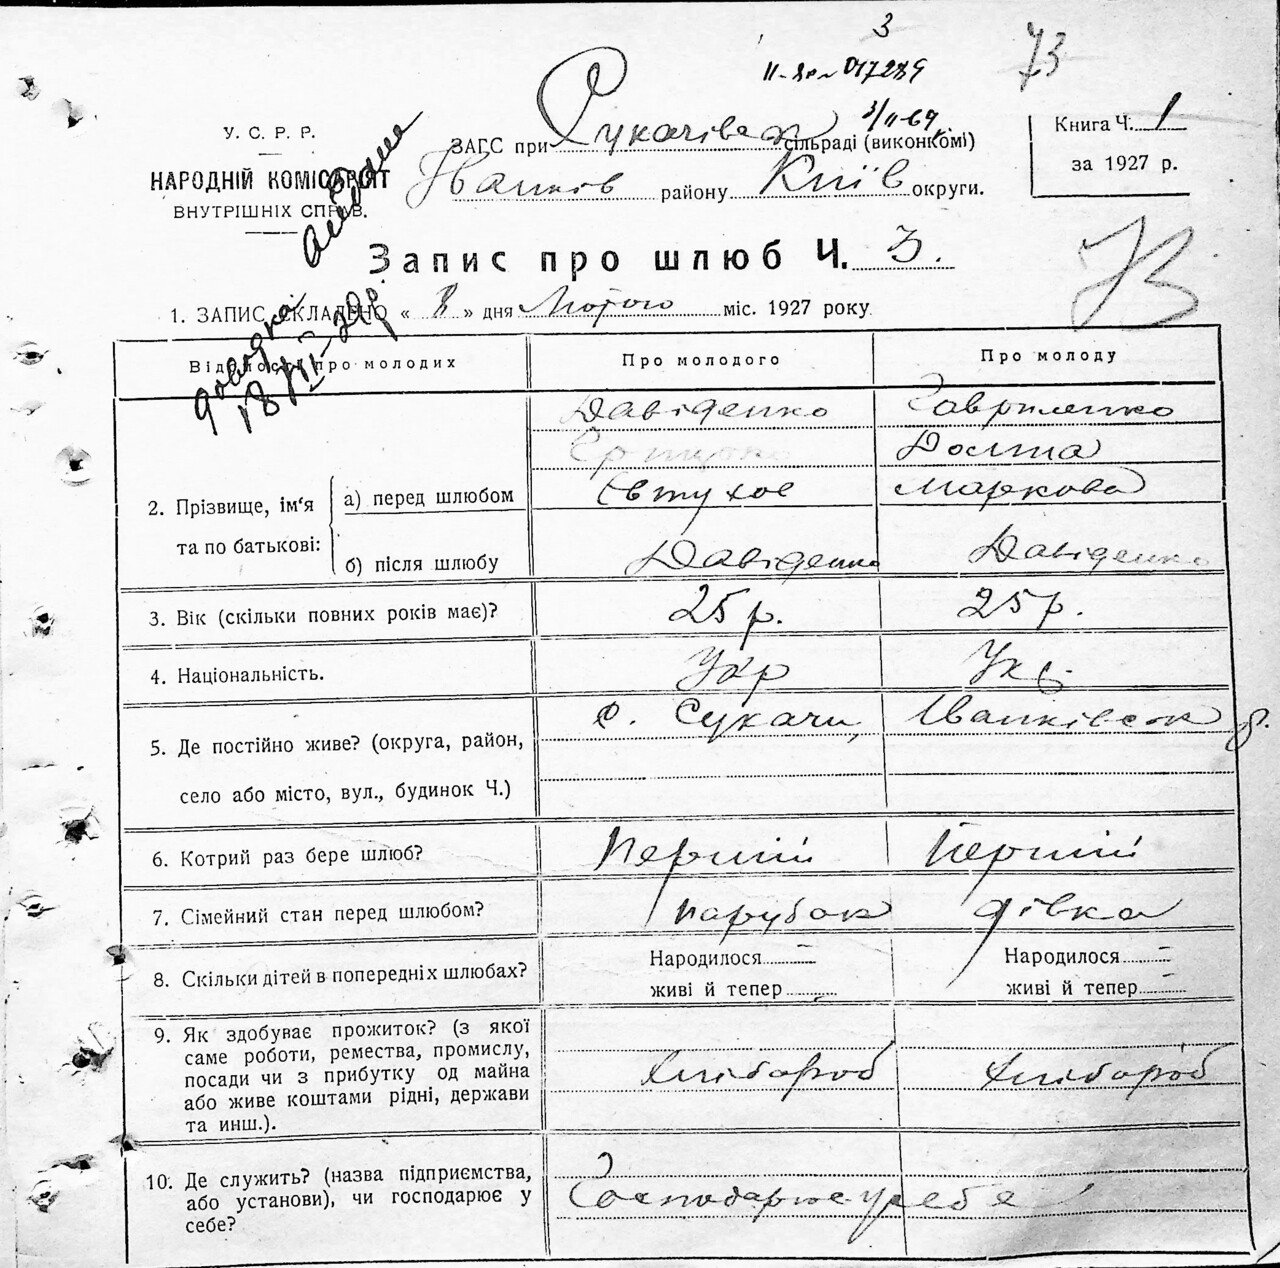 3
73
II-
017289
3/II-69
У. С. Р. Р.
НАРОДНІЙ КОМІСАРІЯТ
ВНУТРІШНІХ СПРАВ.
ЗАГС при Сукачівск сільраді (виконкомі)
Іванків району Київ округи.
Книга Ч. 1
за 1927 р.
довідка
18/VII-29р.
Запис про шлюб Ч. 3.
73
1. ЗАПИС СКЛАДЕНО « 8 » дня Лютого міс. 1927 року
Відомості про молодих Про молодого Про молоду
Давіденко Гавриленко
Домна
2. Прізвище, ім'я та по батькові:
а) перед шлюбом Євтухов Маркова
б) після шлюбу Давіденко Давіденко
3. Вік (скільки повних років має)? 25 р. 25 р.
4. Національність. Укр Укр
5. Де постійно живе? (округа, район, с. Сукачи, Іванківськ р.
село або місто, вул., будинок Ч.)
6. Котрий раз бере шлюб? Перший Перший
7. Сімейний стан перед шлюбом? парубок дівка
8. Скільки дітей в попередніх шлюбах? Народилося — Народилося —
живі й тепер — живі й тепер —
9. Як здобуває прожиток? (з якої
саме роботи, ремества, промислу,
посади чи з прибутку од майна Хлібороб Хлібороб
або живе коштами рідні, держави
та инш.).
10. Де служить? (назва підприємства,
або установи), чи господарює у Господарює у себе
себе?